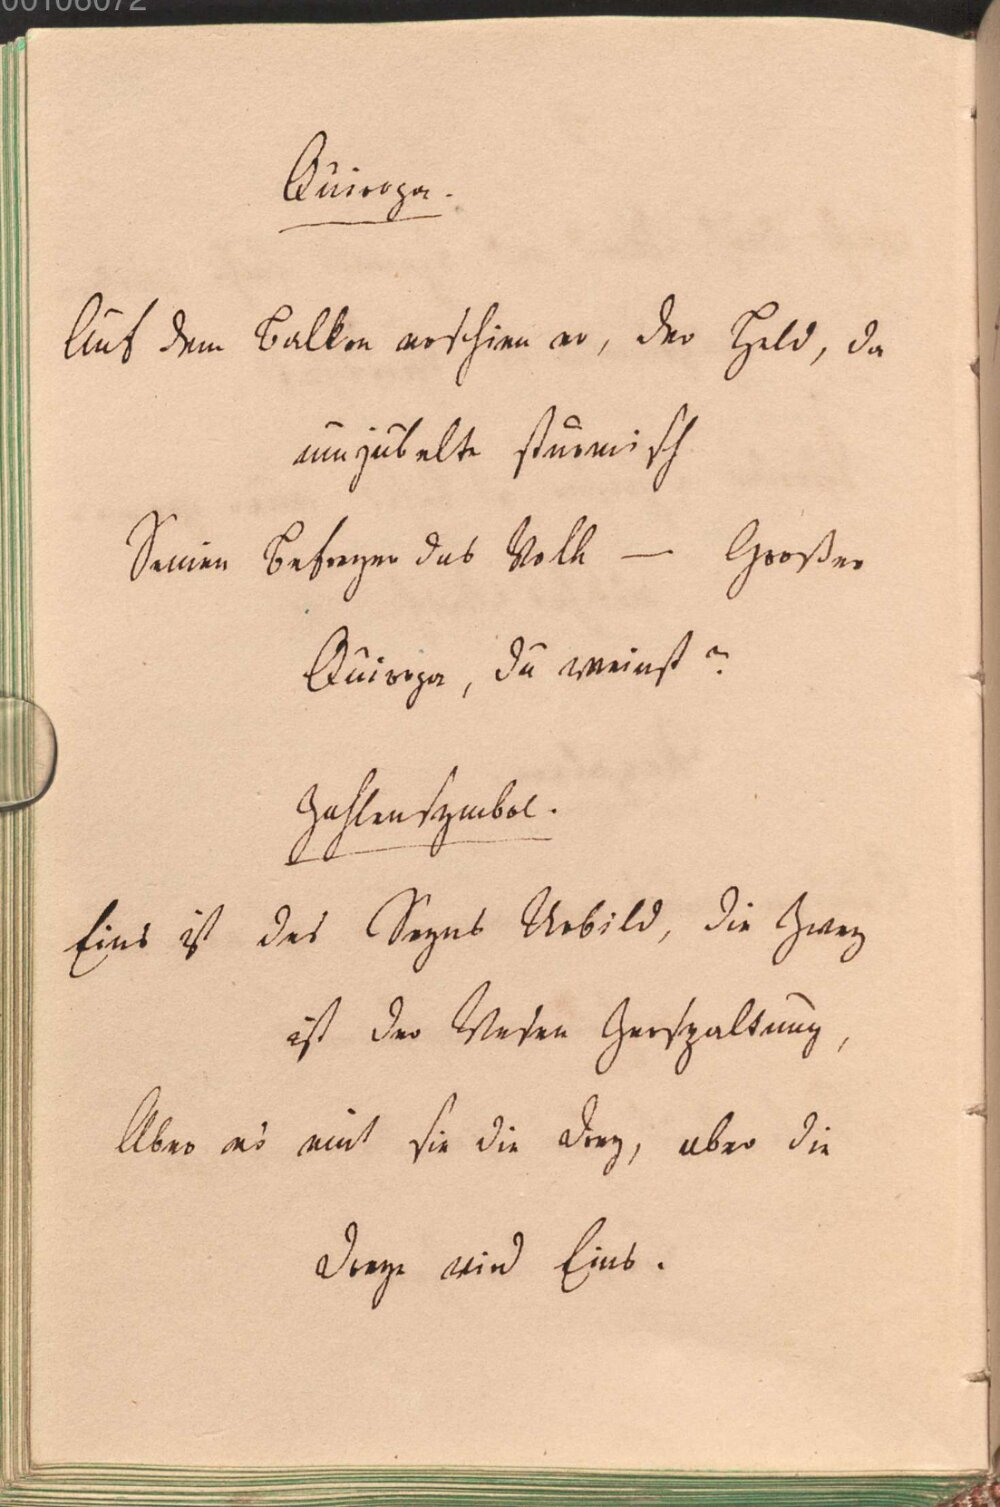 00106072
Quiroga.
Auf dem Balkon erschien er, der Held, da
umjubelte stürmisch
Seinen Befreyer das Volk — Großer
Quiroga, du weinst?
Zahlensymbol.
Eins ist des Seyns Urbild, die Zwey
ist der Wesen Zerspaltung,
Aber es eint sie die Drey, aber die
Dreye wird Eins.